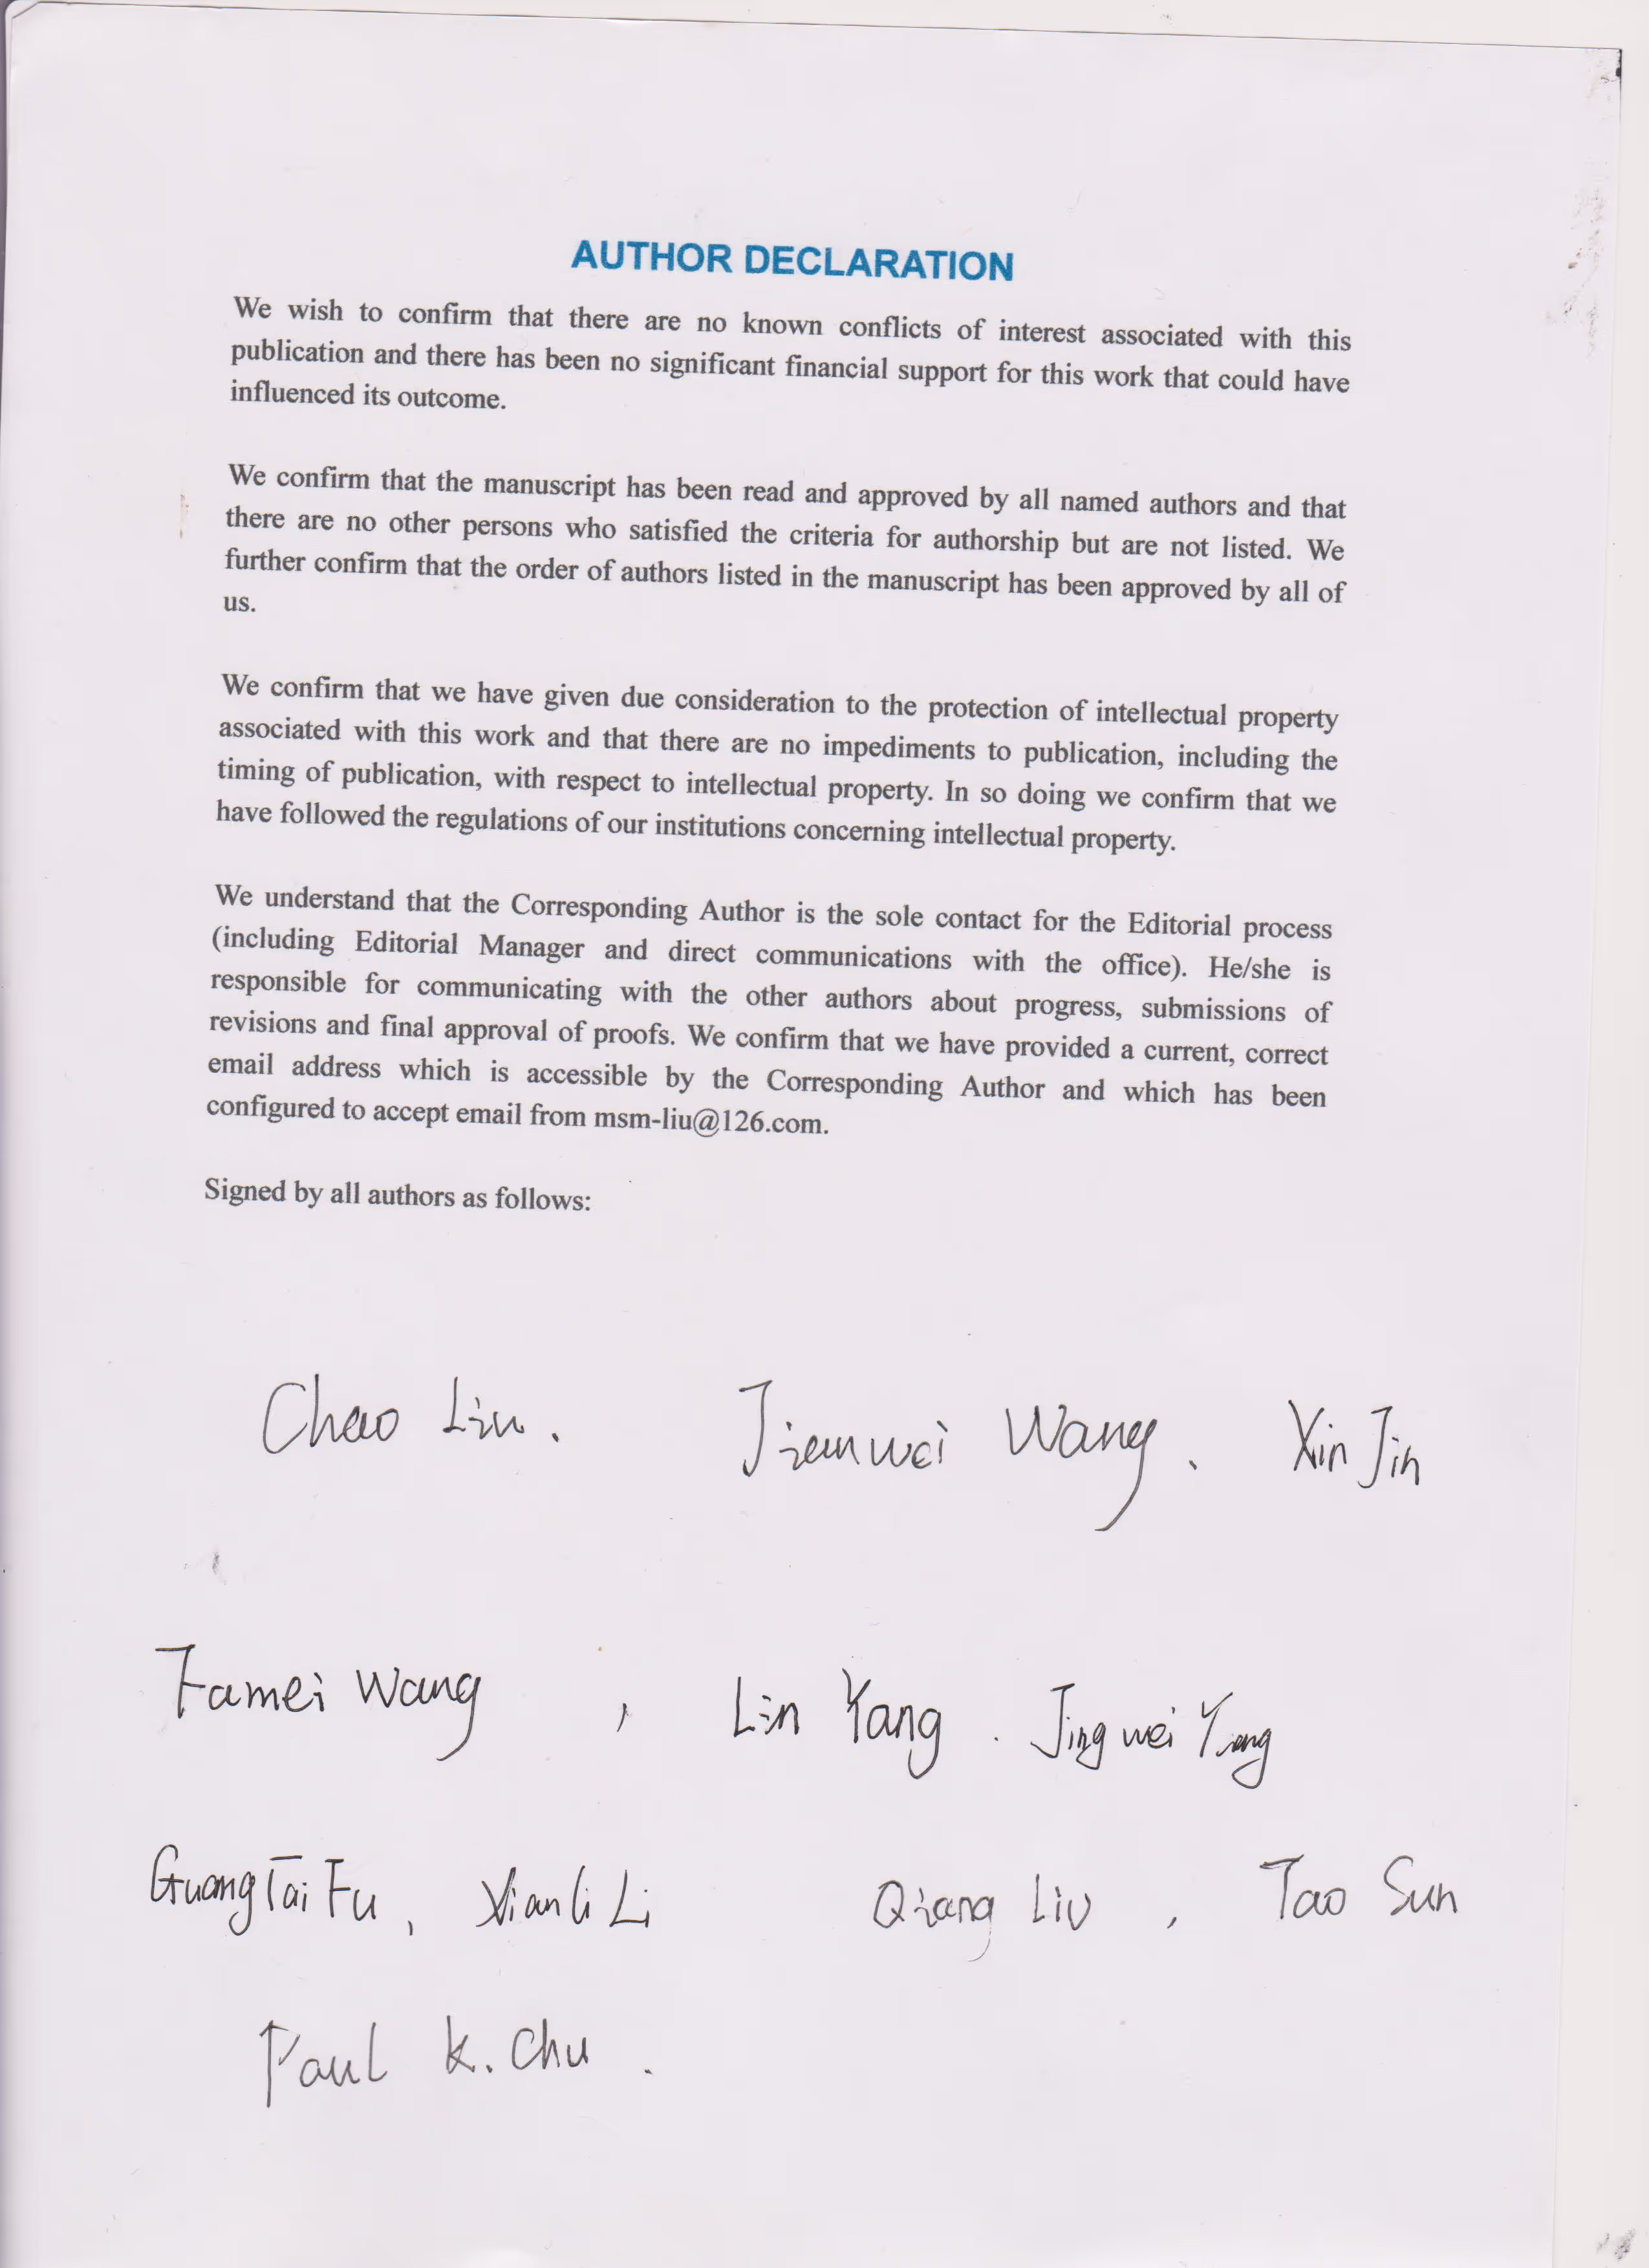 AUTHOR DECLARATION
We wish to confirm that there are no known conflicts of interest associated with this
publication and there has been no significant financial support for this work that could have
influenced its outcome.
We confirm that the manuscript has been read and approved by all named authors and that
there are no other persons who satisfied the criteria for authorship but are not listed. We
further confirm that the order of authors listed in the manuscript has been approved by all of
us.
We confirm that we have given due consideration to the protection of intellectual property
associated with this work and that there are no impediments to publication, including the
timing of publication, with respect to intellectual property. In so doing we confirm that we
have followed the regulations of our institutions concerning intellectual property.
We understand that the Corresponding Author is the sole contact for the Editorial process
(including Editorial Manager and direct communications with the office). He/she is
responsible for communicating with the other authors about progress, submissions of
revisions and final approval of proofs. We confirm that we have provided a current, correct
email address which is accessible by the Corresponding Author and which has been
configured to accept email from msm-liu@126.com.
Signed by all authors as follows:
Chao Liu. Jianwei Wang, Xin Jin
Famei Wang, Lin Yang. Jingwei Yang
Guangtai Fu, Xianli Li Qiang Liu, Tao Sun
Paul K. Chu.